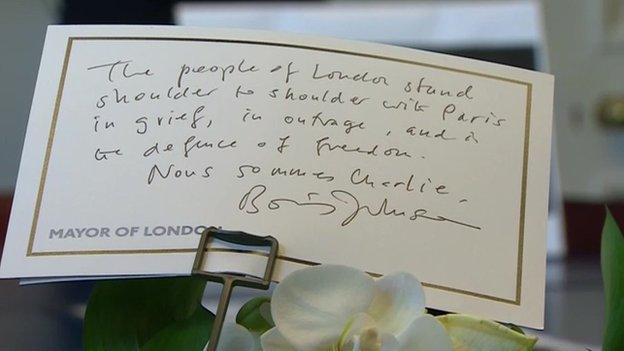 The people of London stand
shoulder to shoulder with Paris
in grief, in outrage, and in
the defence of freedom.
Nous sommes Charlie.
Boris Johnson
MAYOR OF LONDON